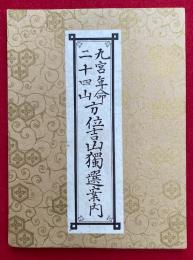 九宮年命
二十四山
方位吉凶獨選案內